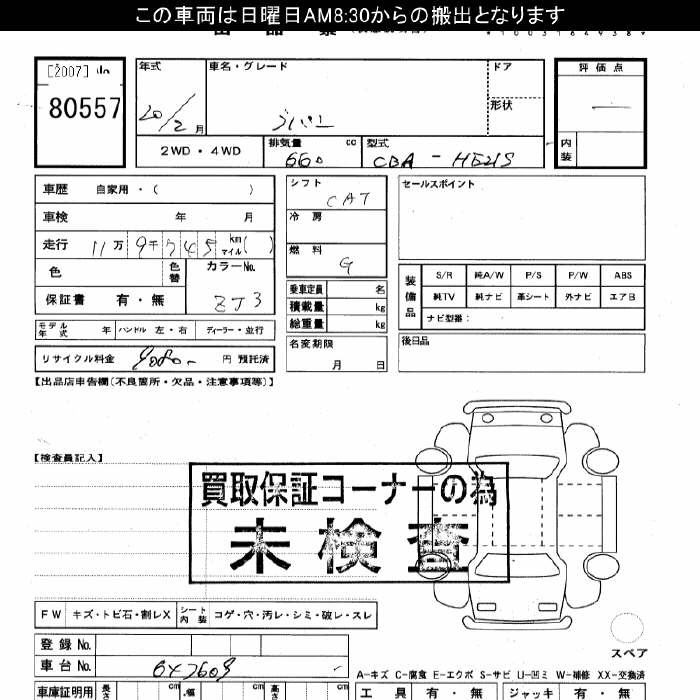 この車両は日曜日AM8:30からの搬出となります
[2007]
80557
年式 車名・グレード ドア
20/2月 形状
評価点
内装
2WD・4WD 排気量 cc 型式
660 CBA - HE21S
車歴 自家用・( )
車検 年 月
走行 11万 9千 7 4 5 km マイル( )
色 色替 カラーNo.
保証書 有・無 ZJ3
シフト CAT
冷房
燃料 G
乗車定員 名
積載量 kg
総重量 kg
名変期限 月 日
セールスポイント
装備品 S/R 純A/W P/S P/W ABS
純TV 純ナビ 革シート 外ナビ エアB
ナビ型番:
後日品
モデル年式 年 ハンドル 左・右 ディーラー・並行
リサイクル料金 円 預託済
【出品店申告欄(不良箇所・欠品・注意事項等)】
【検査員記入】
買取保証コーナーの為
未検査
FW キズ・トビ石・割レX シート内装 コゲ・穴・汚レ・シミ・破レ・スレ
スペア
登録No.
車台No.
A-キズ C-腐食 E-エクボ S-サビ U-凹ミ W-補修 XX-交換済
車庫証明用 長さ cm 幅 cm 高さ cm 工具 有・無 ジャッキ 有・無